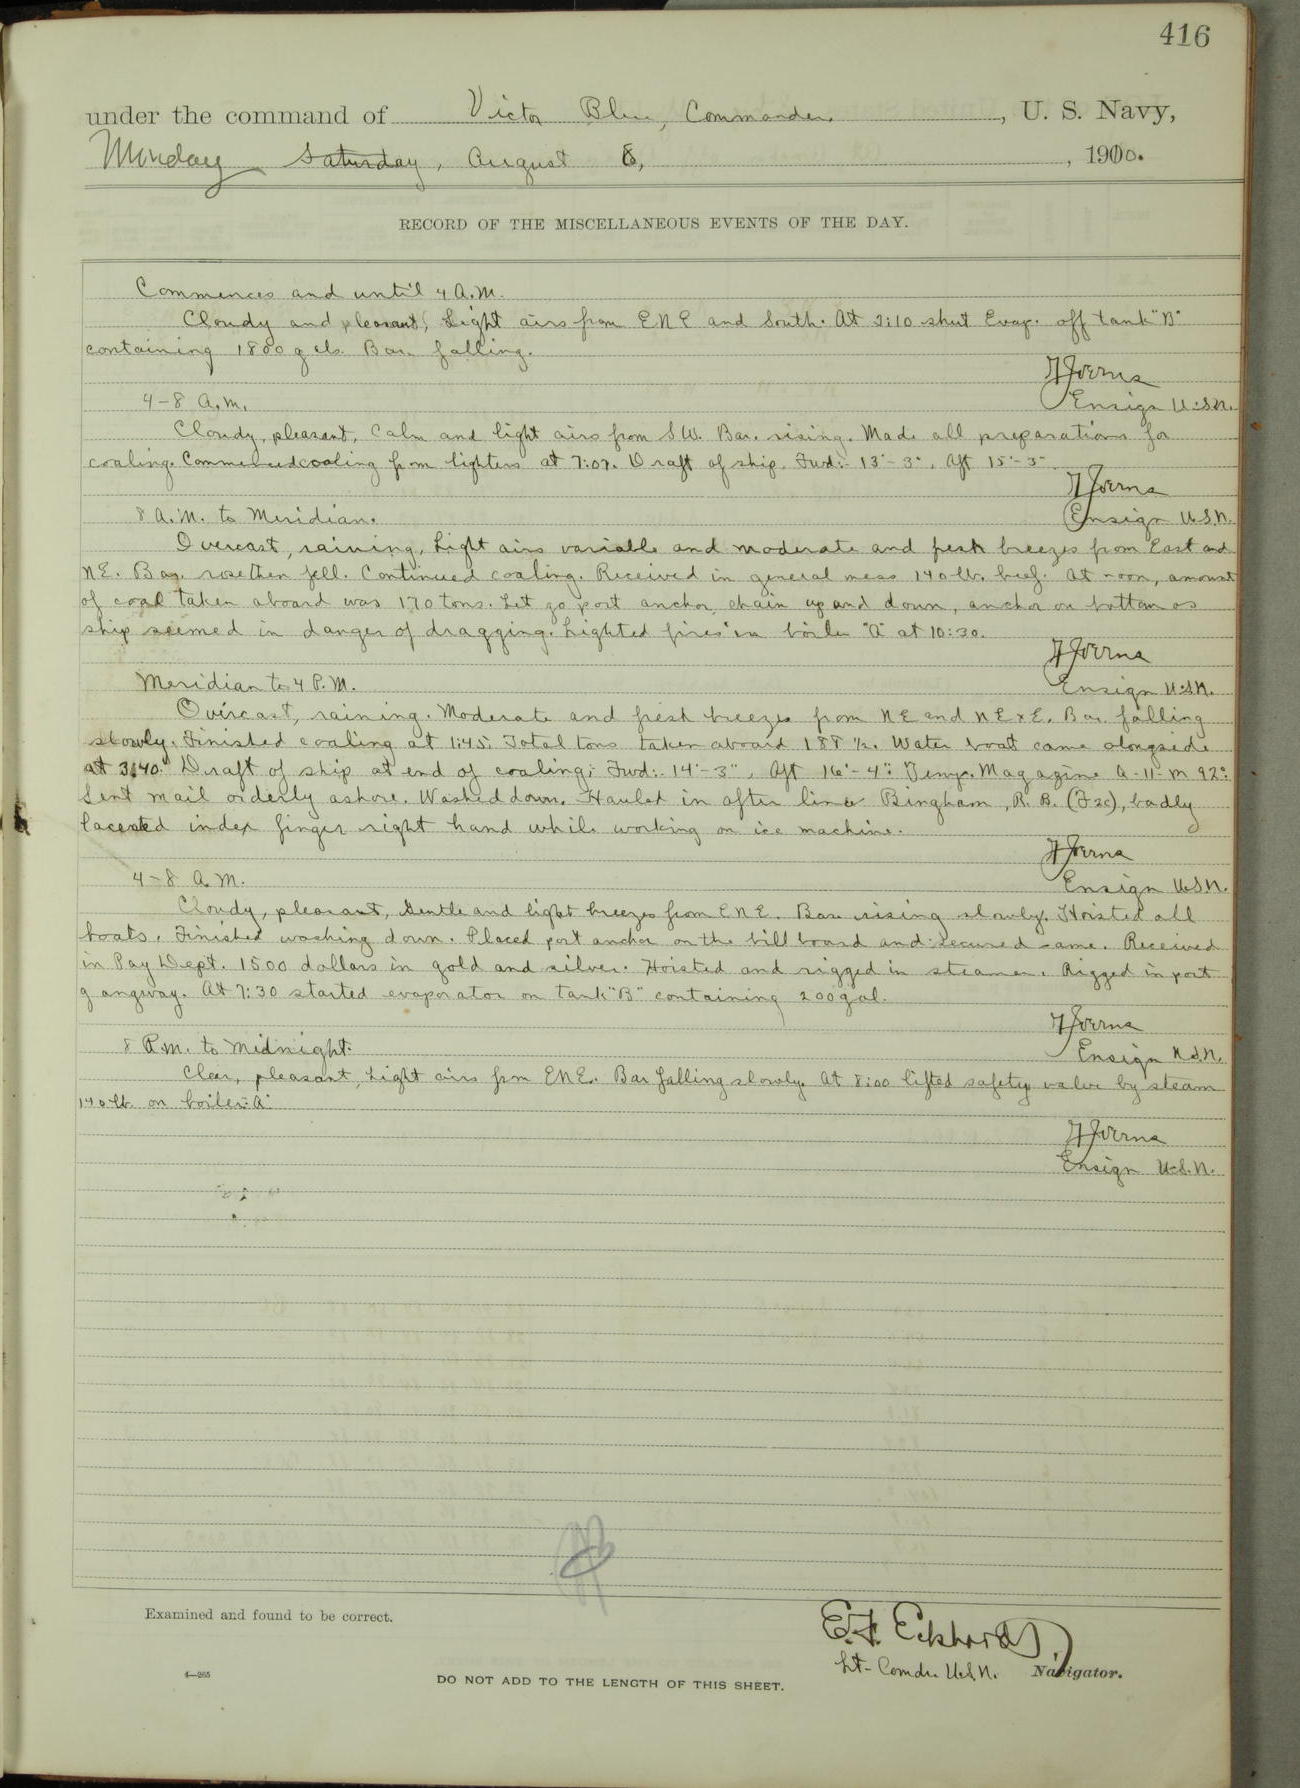 416
under the command of Victor Blue, Commander, U. S. Navy,
Monday Saturday, August 8, 1910.
RECORD OF THE MISCELLANEOUS EVENTS OF THE DAY.
Commences and until 4 A.M.
Cloudy and pleasant, Light airs from ENE and South. At 2:10 shut Evap. off tank "B"
containing 1800 gals. Bar. falling.
Ensign U.S.N.
4-8 A.M.
Cloudy, pleasant, Calm and light airs from S.W. Bar. rising. Made all preparations for
coaling. Commenced coaling from lighters at 7:07. Draft of ship, Fwd:- 13'-3", Aft 15'-3"
Ensign U.S.N.
8 A.M. to Meridian.
Overcast, raining, Light airs variable and moderate and fresh breezes from East and
NE. Bar. rose then fell. Continued coaling. Received in general mess 140 lb. beef. At noon, amount
of coal taken aboard was 170 tons. Let go port anchor, chain up and down, anchor on bottom as
ship seemed in danger of dragging. Lighted fires in boiler "A" at 10:30.
Ensign U.S.N.
Meridian to 4 P.M.
Overcast, raining. Moderate and fresh breezes from NE and NExE. Bar. falling
slowly. Finished coaling at 1:45. Total tons taken aboard 188 ½. Water boat came alongside
at 3:40. Draft of ship at end of coaling; Fwd:- 14'-3", Aft 16'-4". Temp. Magazine A-11-M 92°.
Sent mail orderly ashore. Washed down. Hauled in after lines Bingham, R. B. (F2c), badly
lacerated index finger right hand while working on ice machine.
Ensign U.S.N.
4-8 A.M.
Cloudy, pleasant, Gentle and light breezes from ENE. Bar. rising slowly. Hoisted all
boats. Finished washing down. Placed port anchor on the bill board and secured same. Received
in Pay Dept. 1500 dollars in gold and silver. Hoisted and rigged in steamer. Rigged in port
gangway. At 7:30 started evaporator on tank "B" containing 200 gal.
Ensign U.S.N.
8 P.M. to Midnight.
Clear, pleasant, Light airs from ENE. Bar falling slowly. At 8:00 lifted safety valve by steam
140 lb. on boiler "A"
Ensign U.S.N.
Examined and found to be correct.
E.F. Eckhardt
Lt-Comdr. U.S.N. Navigator.
4—265
DO NOT ADD TO THE LENGTH OF THIS SHEET.